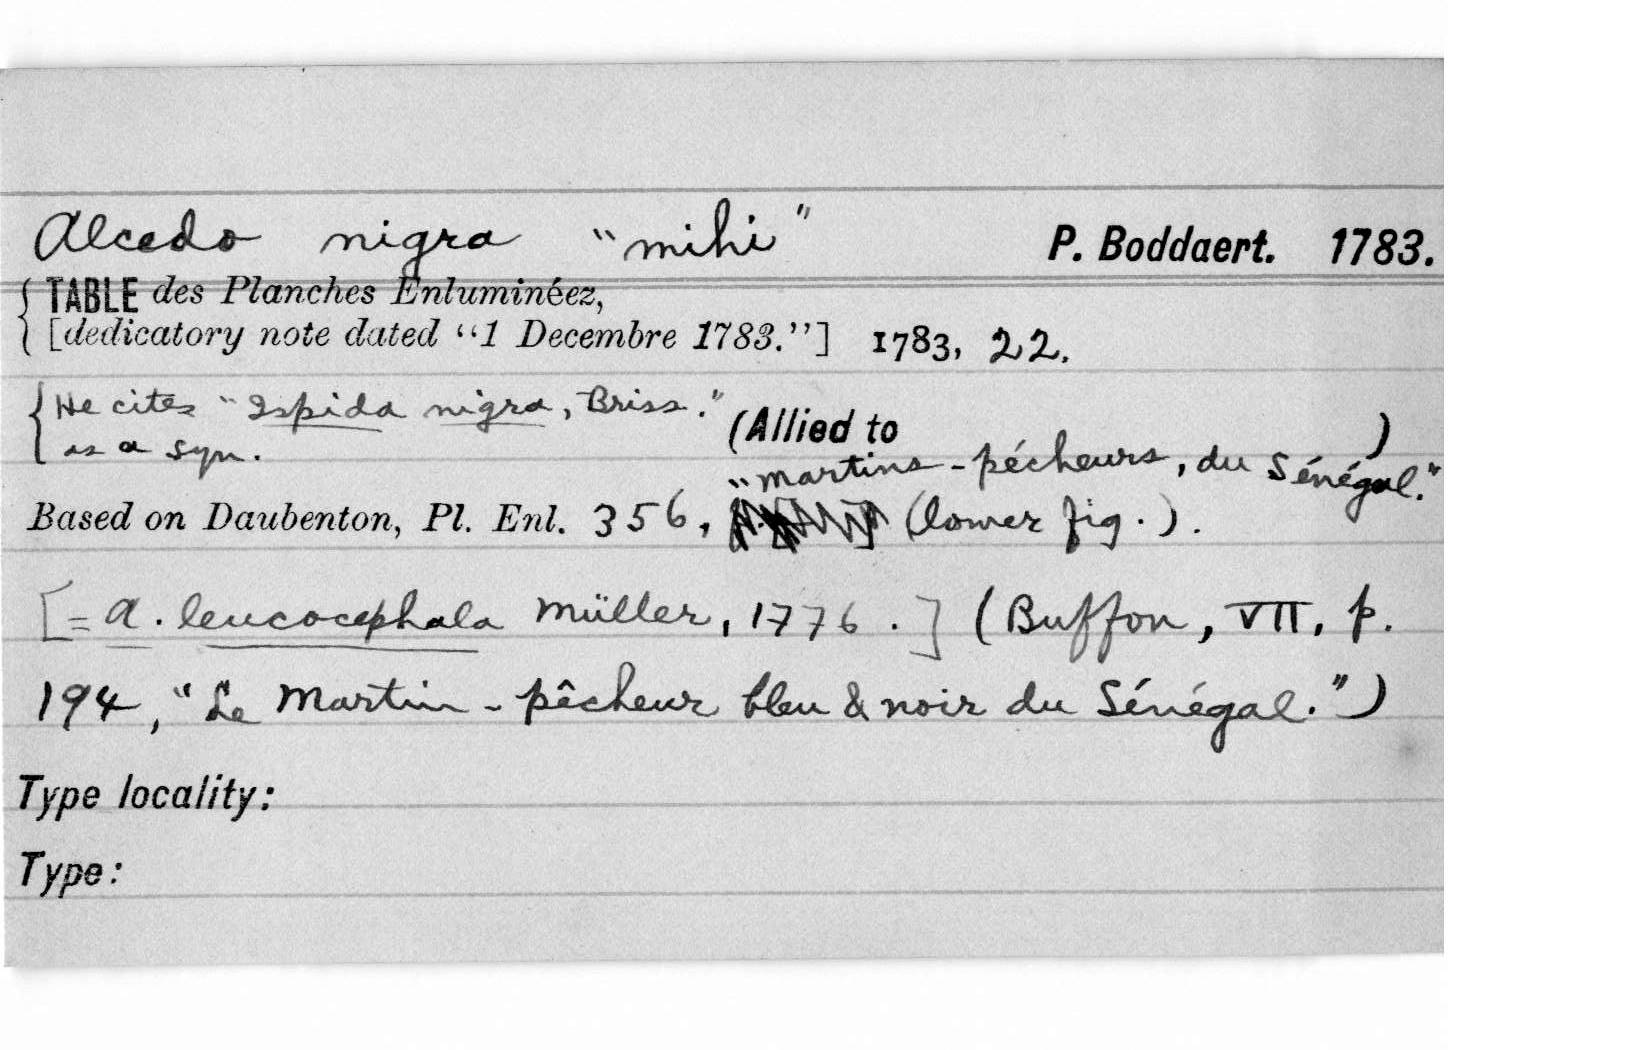 Alcedo nigra "mihi" P. Boddaert. 1783.
TABLE des Planches Enluminéez,
[dedicatory note dated "1 Decembre 1783."] 1783, 22.
He cites "Ispida nigra, Briss."
as a syn.
(Allied to )
"martins-pécheurs, du Sénégal."
Based on Daubenton, Pl. Enl. 356, (lower fig.).
[= A. leucocephala Müller, 1776.] (Buffon, VII, p.
194, "Le Martin-pêcheur bleu & noir du Sénégal.")
Type locality:
Type: